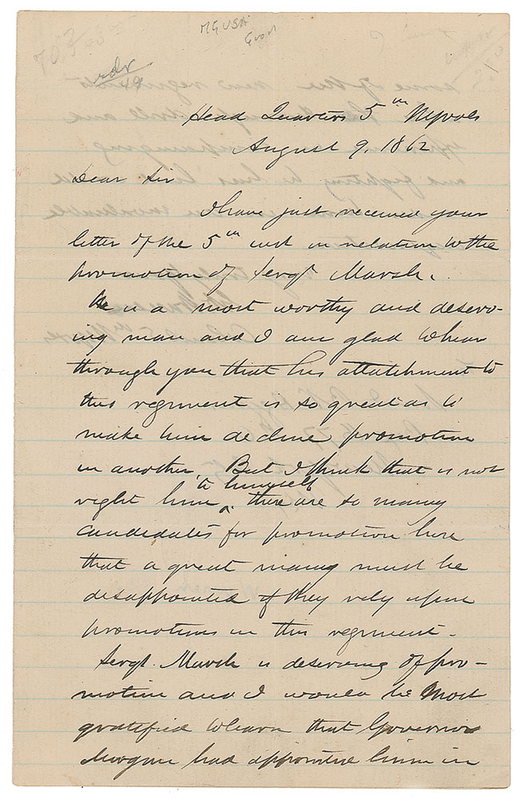 MGUSA
Head Quarters 5th NYVols
August 9, 1862
Dear Sir
I have just received your
letter of the 5th inst in relation to the
promotion of Sergt Marsh.
He is a most worthy and deserv-
ing man and I am glad to hear
through you that his attatchment to
this regiment is so great as to
make him decline promotion
in another. But I think that is not
right to himself
him there are so many
candidates for promotion here
that a great many must be
disappointed if they rely upon
promotions in this regiment.
Sergt. Marsh is deserving of pro-
motion and I would be most
gratified to learn that Governor
Morgan had appointed him in